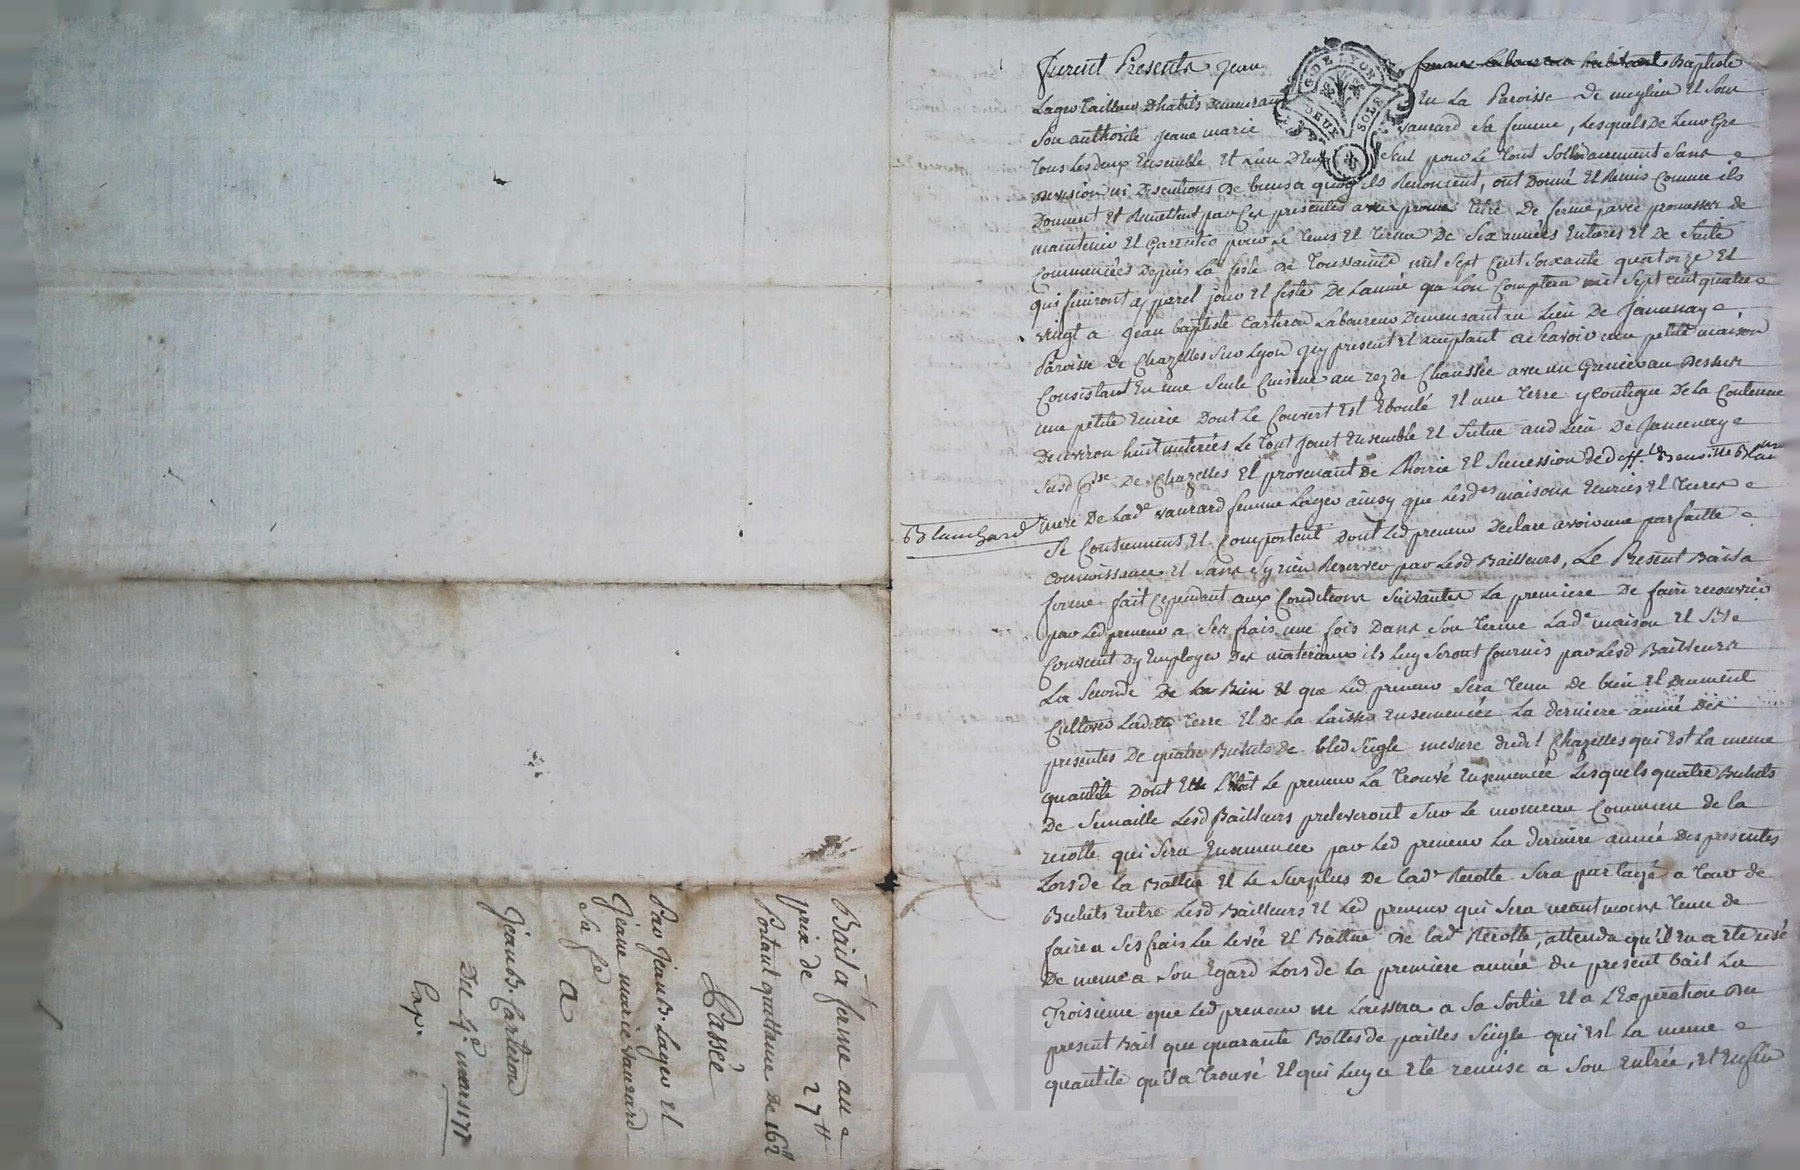 Furent Presents Jean femme laboureur habitant Baptiste
Lager Tailleur Dhabits demeurant En La Paroisse De meylieu Et Sous
Son authorité jeane marie vanrard sa femme, Lesquels De Leur Gré
Tous Les deux Ensemble Et Lun D'Eux Seul pour Le Tout Sollidairement Sans
division ni discutions De biens a quoy ils Renoncent, ont Donné Et Remis Comme ils
Donnent Et Remettent par Ces presentes a titre De ferme, avec promesses de
maintenir Et Garentir pour Le Tems Et Terme De Six années Entieres Et De Suite
Commencées Depuis La feste De Toussaints mil Sept Cent Soixante quatorze Et
qui finiront a parel jour Et feste De Lannée que Lon Comptera mil Sept cent quatre
vingt a Jean baptiste Carteron Laboureur Demeurant au Lieu De Jamessay
Paroisse De Chazelles Sur Lyon Icy present Et acceptant a Scavoir une petite maison
Consistant En une Seule Cuisine au rez de Chaussée avec un Grenier au Dessus
une petite Ecurie Dont Le Couvert Est Eboulé Et une Terre y Contigue De La Contenue
Denviron huit meterées Le Tout Joint Ensemble Et Situé aud Lieu De Jancenay
Susd Psse De Chazelles Et provenant De Lhoirie Et Succession de deff.te
Blanchard
mere De Lade vanrard femme Lager ainsy que Lesdes maisons Ecuries Et Terres
Se Contiennent Et Comportent Dont Led preneur Declare avoir une parfaitte
connoissance Et Sans Sy rien Reserver par Lesd Bailleurs, Le Present Bail a
ferme fait Cependant aux Conditions Suivantes La premiere De faire recouvrir
par Led preneur a Ses frais une fois Dans Son Terme Lade maison Et Sils
Convient Dy Employer Des materiaux ils Luy Seront fournis par Lesd Bailleurs
La Seconde De Et que Led preneur Sera Tenu De bien Et Dument
Cultiver Laditte Terre Et De La Laisser Ensemencée La derniere année Des
presentes De quatre Bichets de bled Seigle mesure dudit Chazelles qui Est La meme
quantité Dont Le preneur La Trouvé Ensemencée Lesquels quatre Bichets
De Semaille Lesd Bailleurs preleveront Sur Le monceau Commun de la
recolte qui Sera Ensemencée par Led preneur La derniere année Des presentes
Lors de La Battue Et Le Surplus De Lade Recolte Sera partagé a Tour de
Bichets Entre Lesd Bailleurs Et Led preneur qui Sera neantmoins Tenu de
faire a Ses frais La Levée Et Battue De Lade Recolte, attendu qu'il En a Eté usé
De meme a Son Egard Lors de La premiere année du present bail La
Troisieme que Led preneur ne Laissera a Sa Sortie Et a L'Expiration Du
present Bail que quarante Bottes de pailles Seigle qui Est La meme
quantité qu'il a Trouvé Et qui Luy a Eté remise a Son Entrée, Et Enfin
Bail a ferme au
prix de 27tt
Portant quittance de 162
Passée
Par Jean B. Lager Et
Jeane marie vanrard
Sa fe
a
Jean B. Carteron
Du 4e mars 177
Exp.